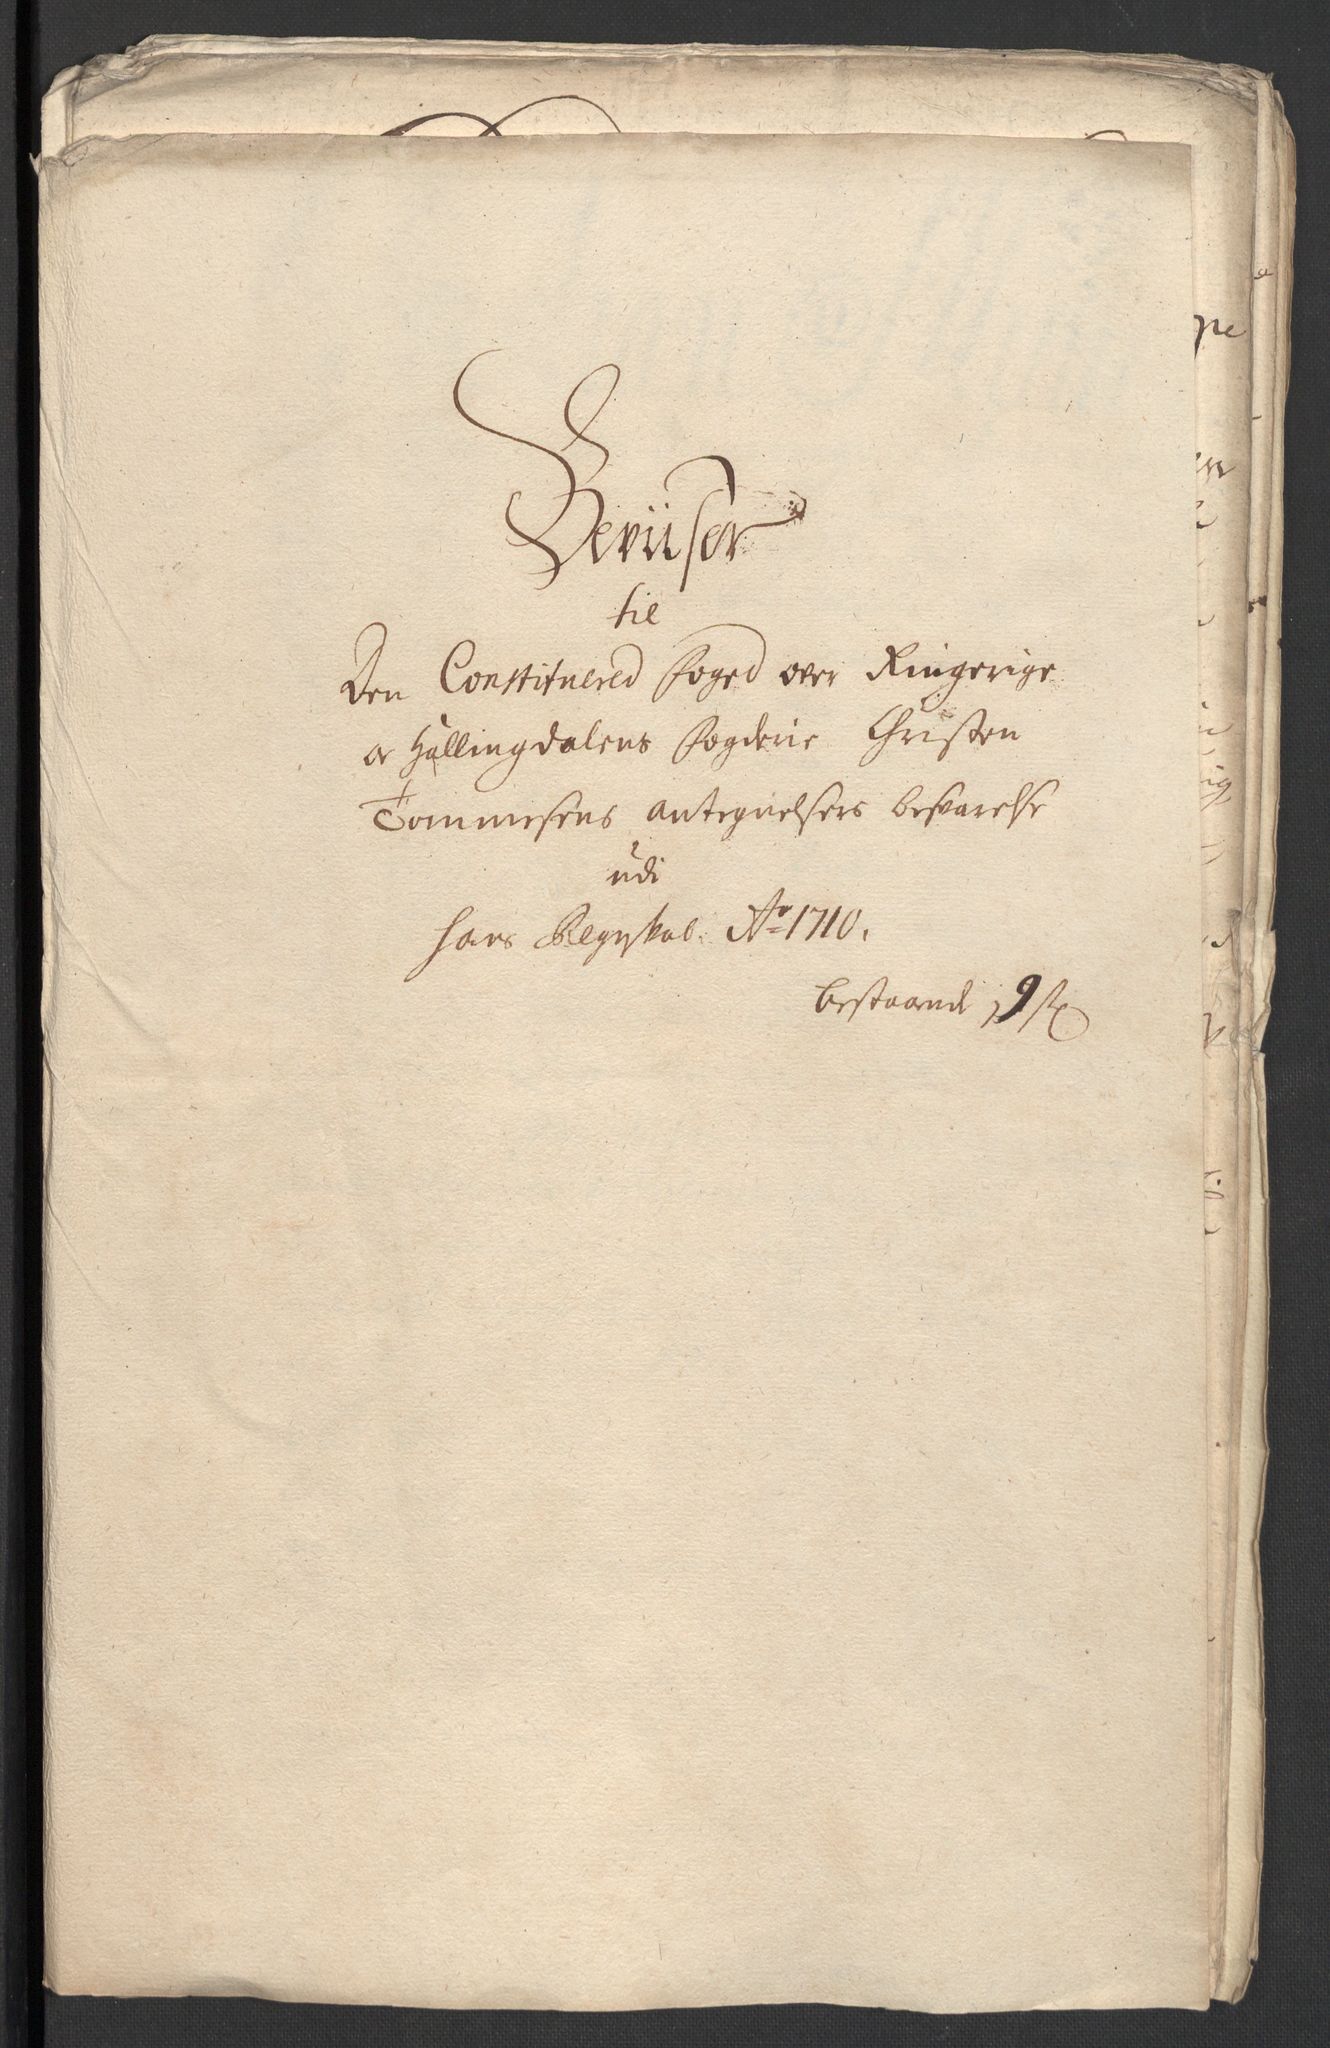 Beviiser
til
Den Constituered foged over Ringerige
oc Hallingdalens fogderie Christen
Tommesens antegnelsers besvarelse
udi
hans Regnskab Ao 1710.
bestaaende 9 st